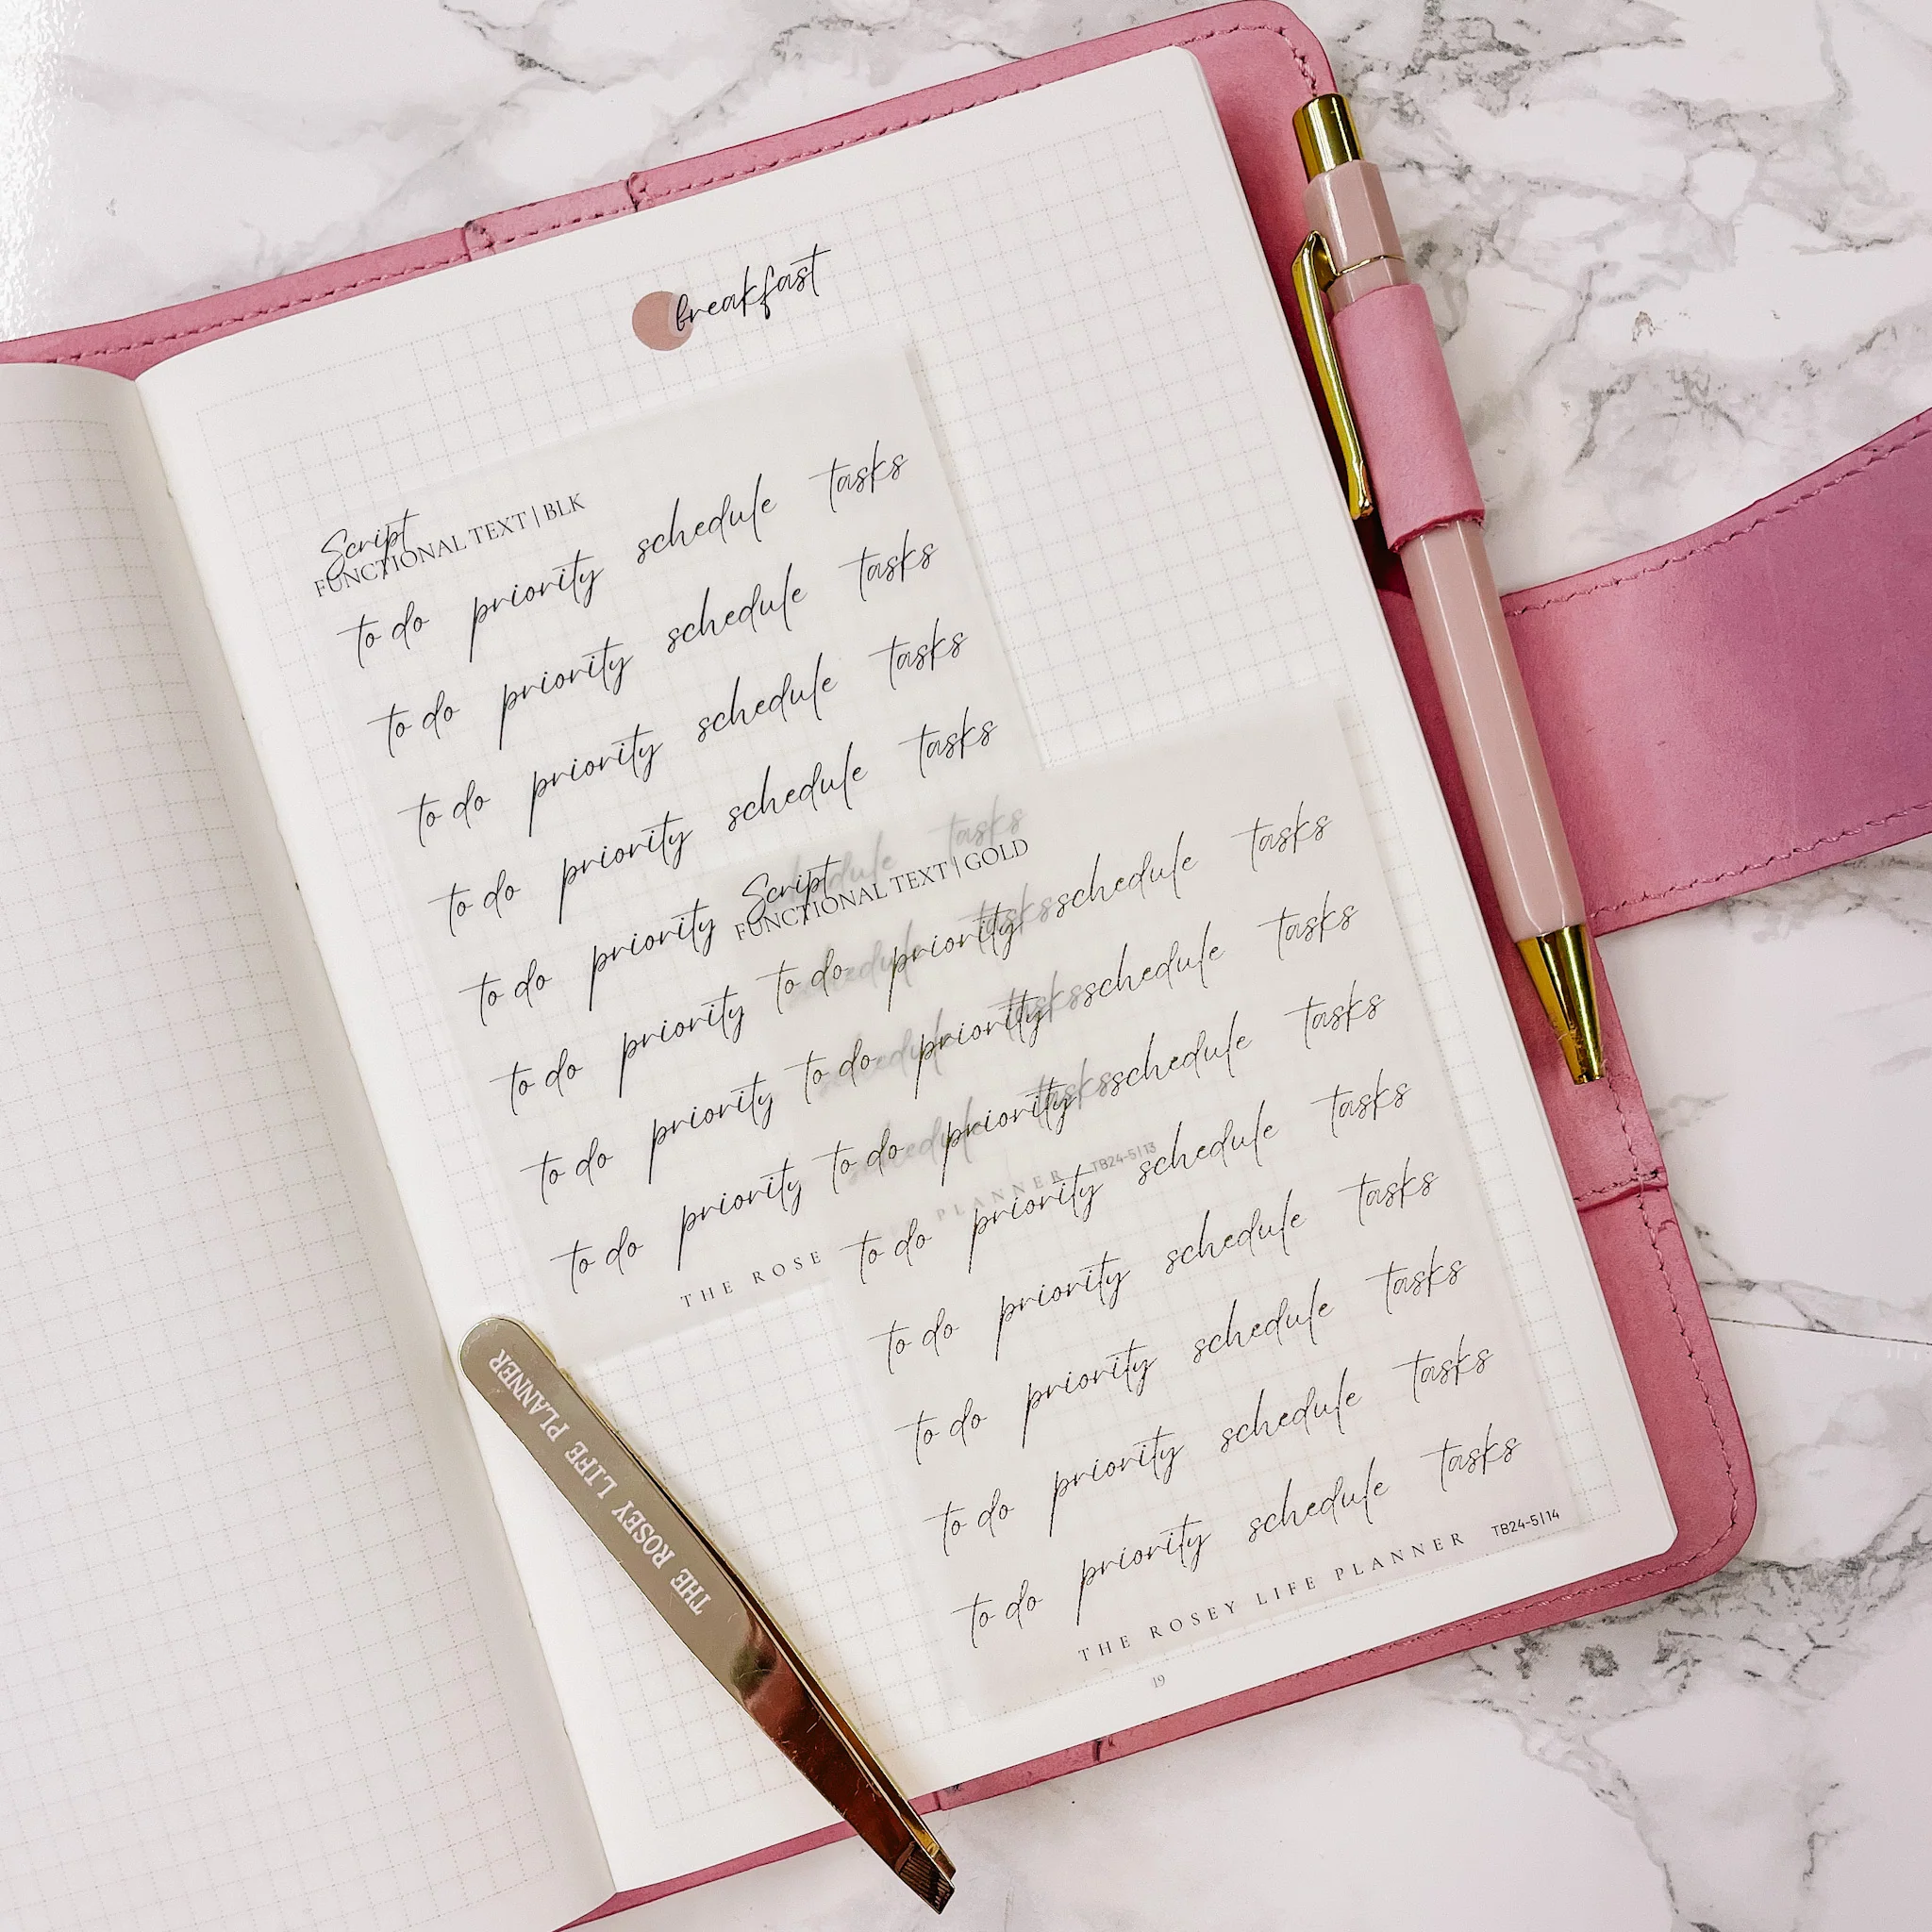 breakfast
Script
FUNCTIONAL TEXT | BLK
to do priority schedule tasks
to do priority schedule tasks
to do priority schedule tasks
to do priority schedule tasks
to do priority schedule tasks
to do priority schedule tasks
to do priority schedule tasks
to do priority schedule tasks
THE ROSE PLANNER TB24-5|13
Script
FUNCTIONAL TEXT | GOLD
to do priority schedule tasks
to do priority schedule tasks
to do priority schedule tasks
to do priority schedule tasks
to do priority schedule tasks
to do priority schedule tasks
to do priority schedule tasks
to do priority schedule tasks
THE ROSEY LIFE PLANNER TB24-5|14
19
THE ROSEY LIFE PLANNER